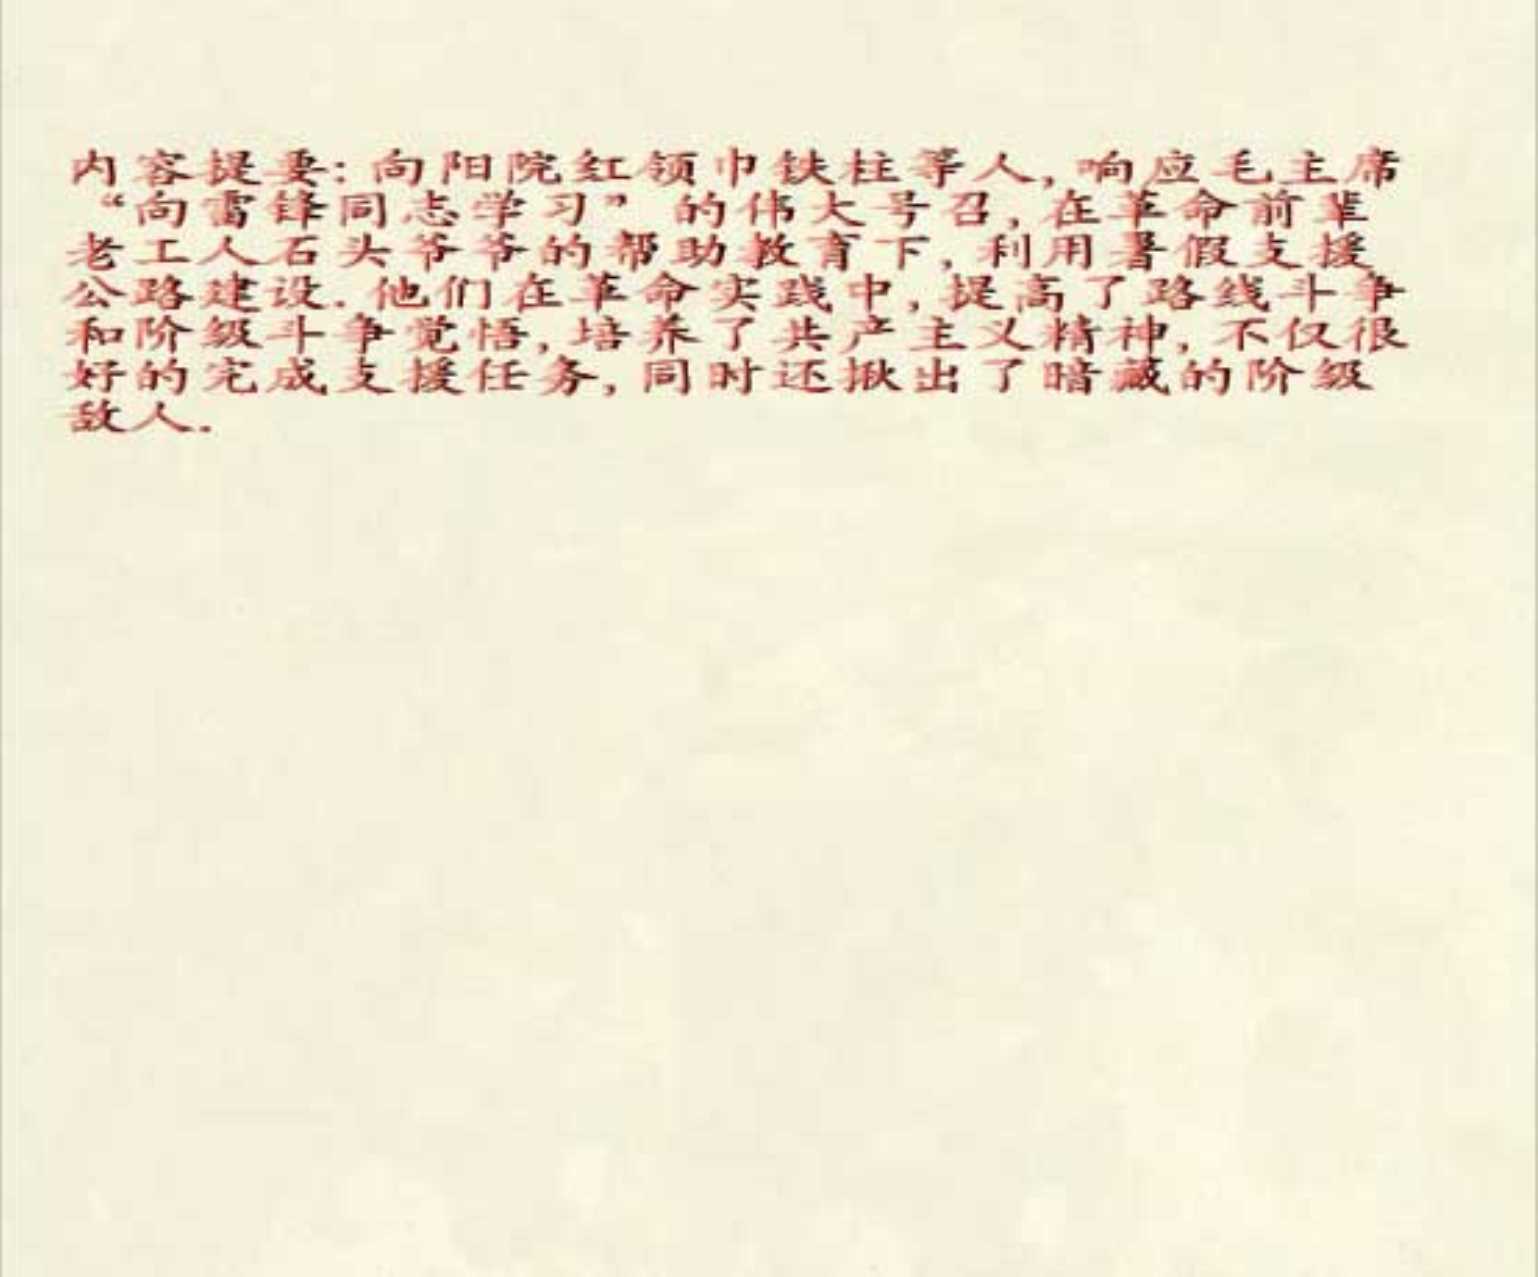 内容提要:向阳院红领巾铁柱等人,响应毛主席
“向雷锋同志学习”的伟大号召,在革命前辈
老工人石头爷爷的帮助教育下,利用暑假支援
公路建设.他们在革命实践中,提高了路线斗争
和阶级斗争觉悟,培养了共产主义精神,不仅很
好的完成支援任务,同时还揪出了暗藏的阶级
敌人.